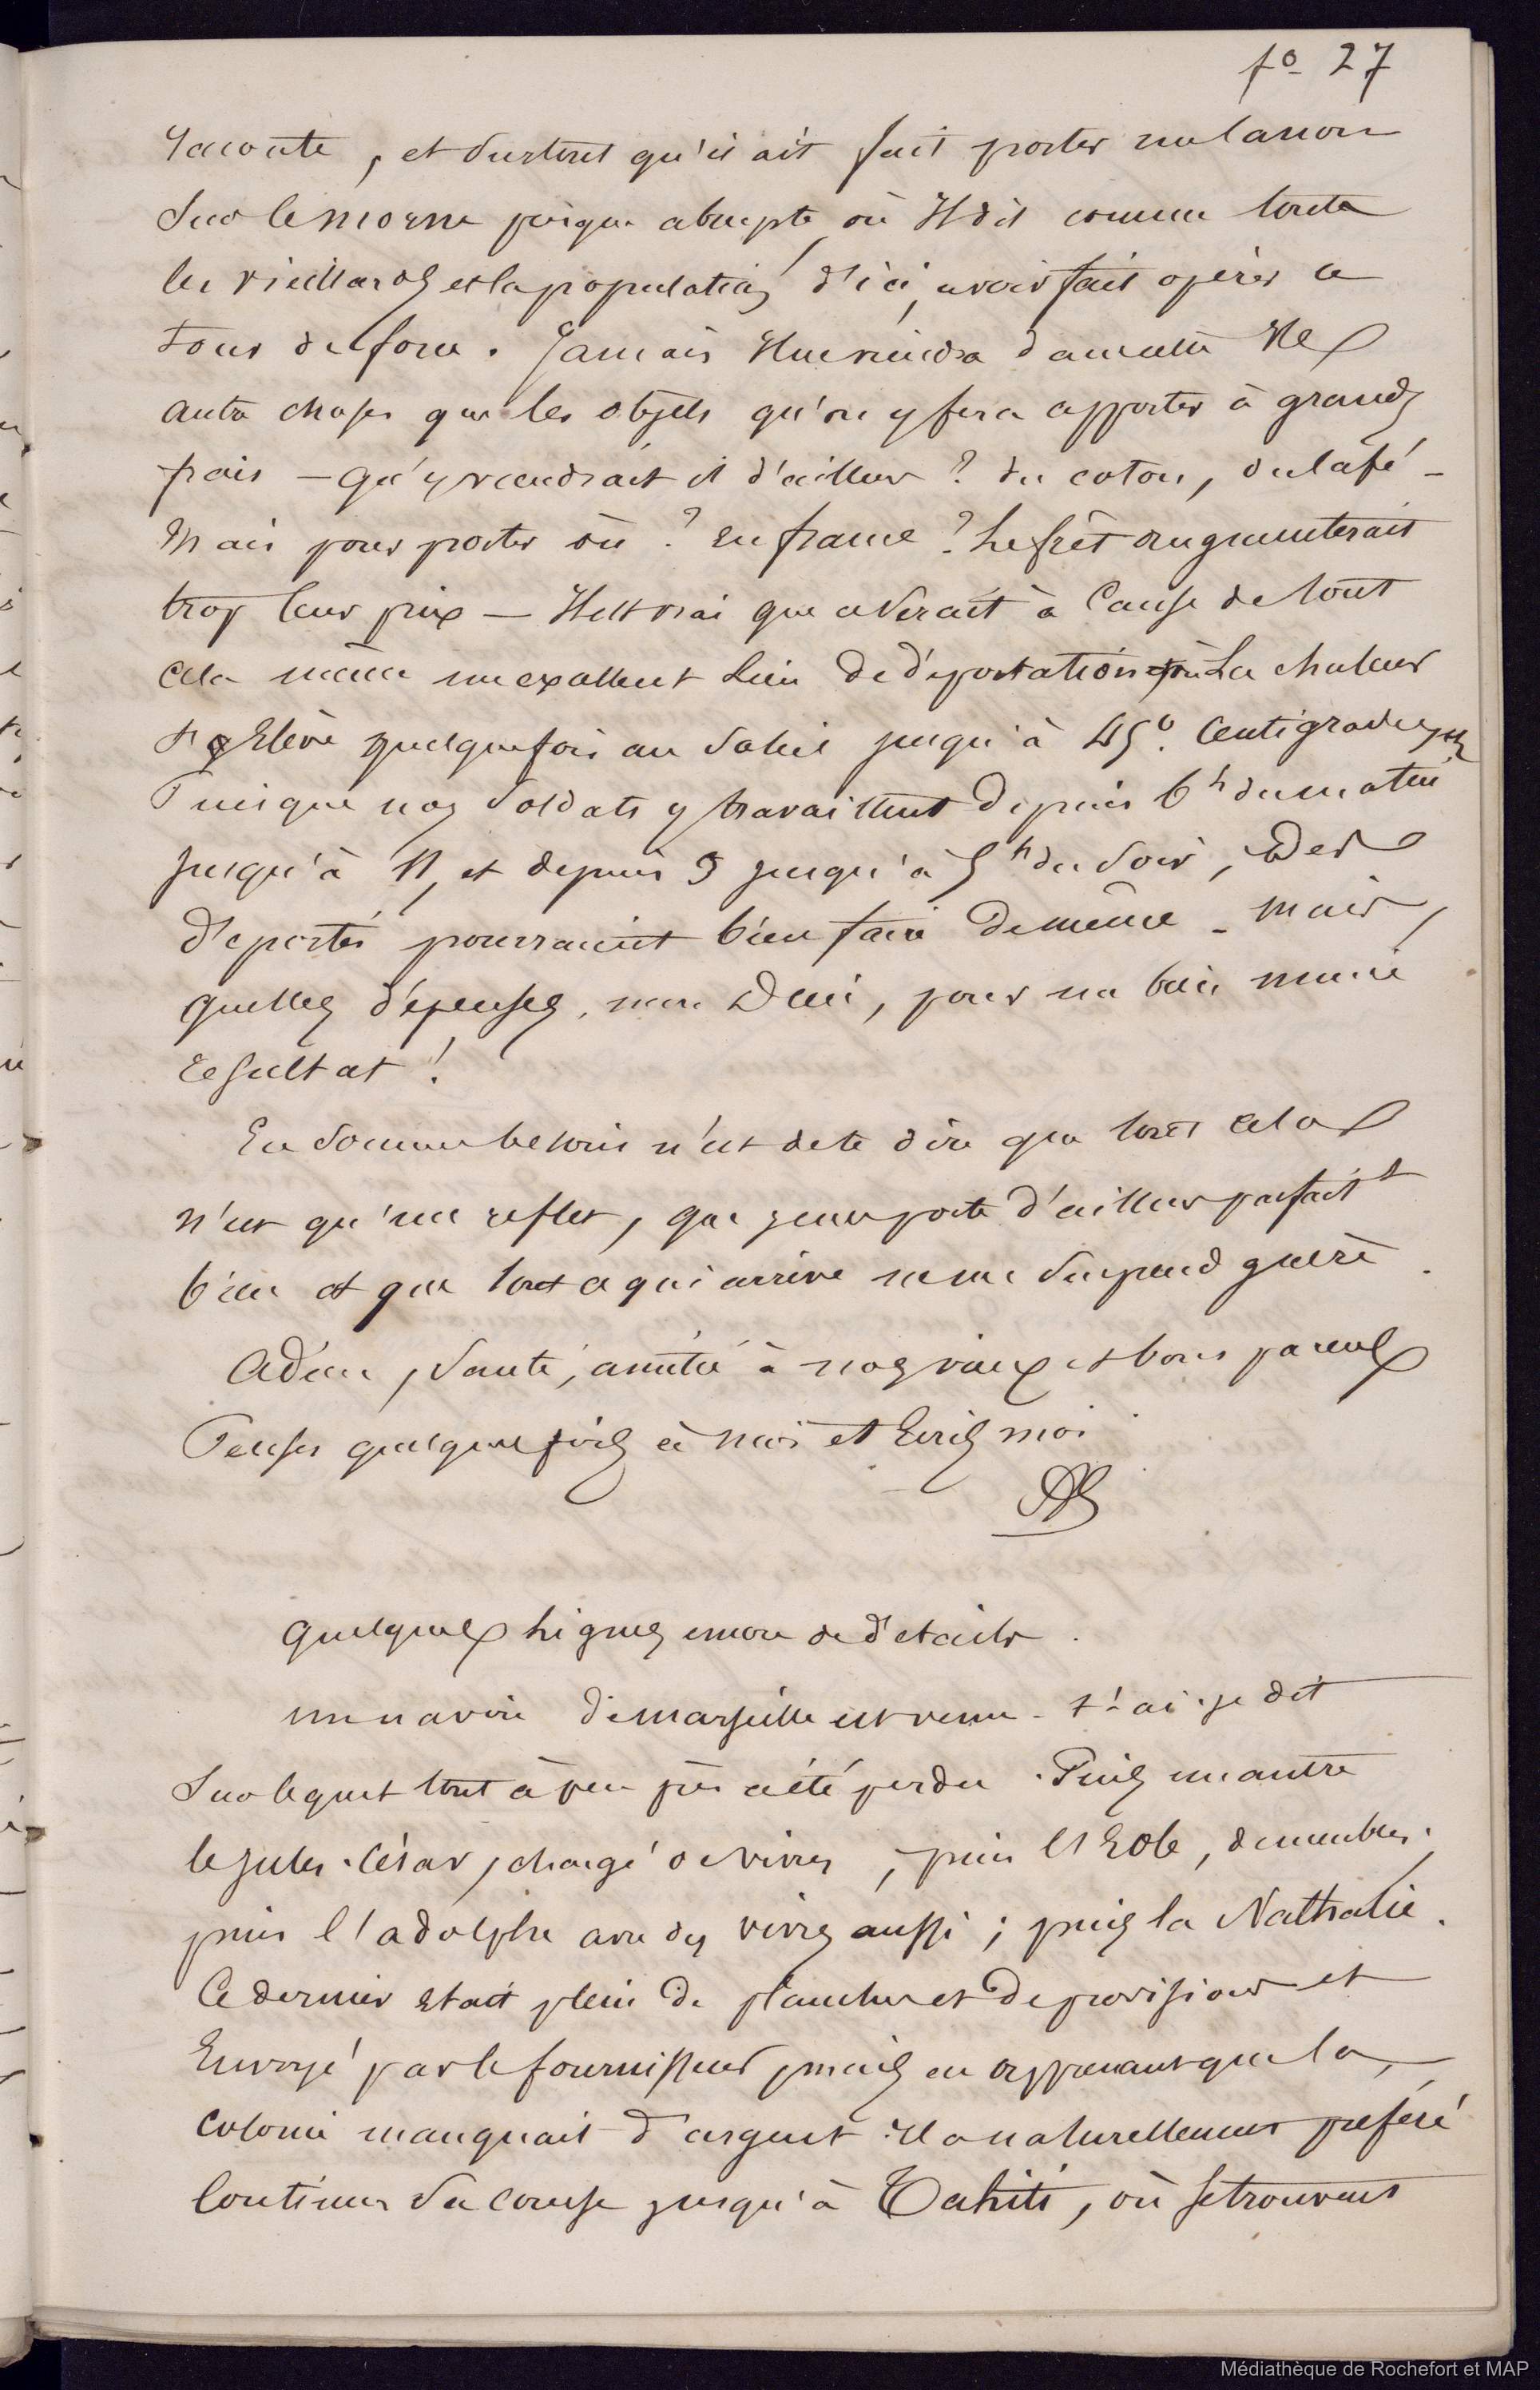 fo 27
raconte, et surtout qu'il ait fait porter un canon
sur le morne presque abrupte où Il dit comme toute
les vieillards et la population d'ici, avoir fait opérer ce
tour de force. Jamais Il ne viendra dans cette Ile
autre choses que les objets qu'on y fera apporter à grands
frais — qu'y viendrait il d'ailleurs ? du coton, du café –
Mais pour porter où ? En france ? Le frèt augmenterait
trop leur prix — Il est vrai que ce serait à Cause de tout
cela même un excellent Lieu de déportation La chaleur
s'y Elève quelquefois au Soleil jusqu'à 45° Centigrades
Puisque nos Soldats y travaillent depuis 6h du matin
jusqu'à 11, et depuis 3 jusqu'à 5h du Soir, Des
déportés pourraient bien faire de même – mais,
quelles dépenses, mon Dieu, pour un bien mince
résultat !
En Somme besoin n'est de te dire que tout cela
n'est qu'un reflet, que je me porte d'ailleurs parfaitt
bien et que tout ce qui arrive ne me Surprend guère.
Adieu, Santé, amitié à nos vieux et bons parents
Penses quelquefois à moi et Ecris moi
quelques Lignes encore de détails.
un navire de marseille est venu – t'ai-je dit
Sur lequel tout à peu près a été perdu. Puis un autre
le Jules-César, chargé de vivres ; puis l'Eole, de meubles ;
puis l'adolphe avec des vivres aussi ; puis la Nathalie.
Ce dernier etait plein de planches et de provisions et
Envoyé par le fournisseur, mais en apprenant que la
colonie manquait d'argent Il a naturellement préféré
Continuer Sa Course jusqu'à Tahiti, où se trouvent
Médiathèque de Rochefort et MAP